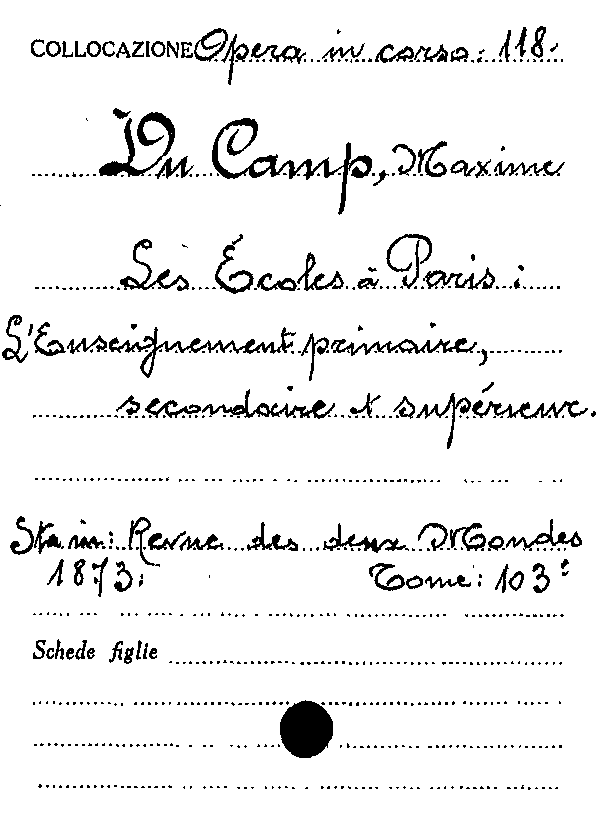 COLLOCAZIONE Opera in corso: 118.
Du Camp, Maxime
Les Écoles à Paris:
L'Enseignement primaire,
secondaire et supérieur.
Sta in: Revue des deux Mondes
1873. Tome: 103e
Schede figlie